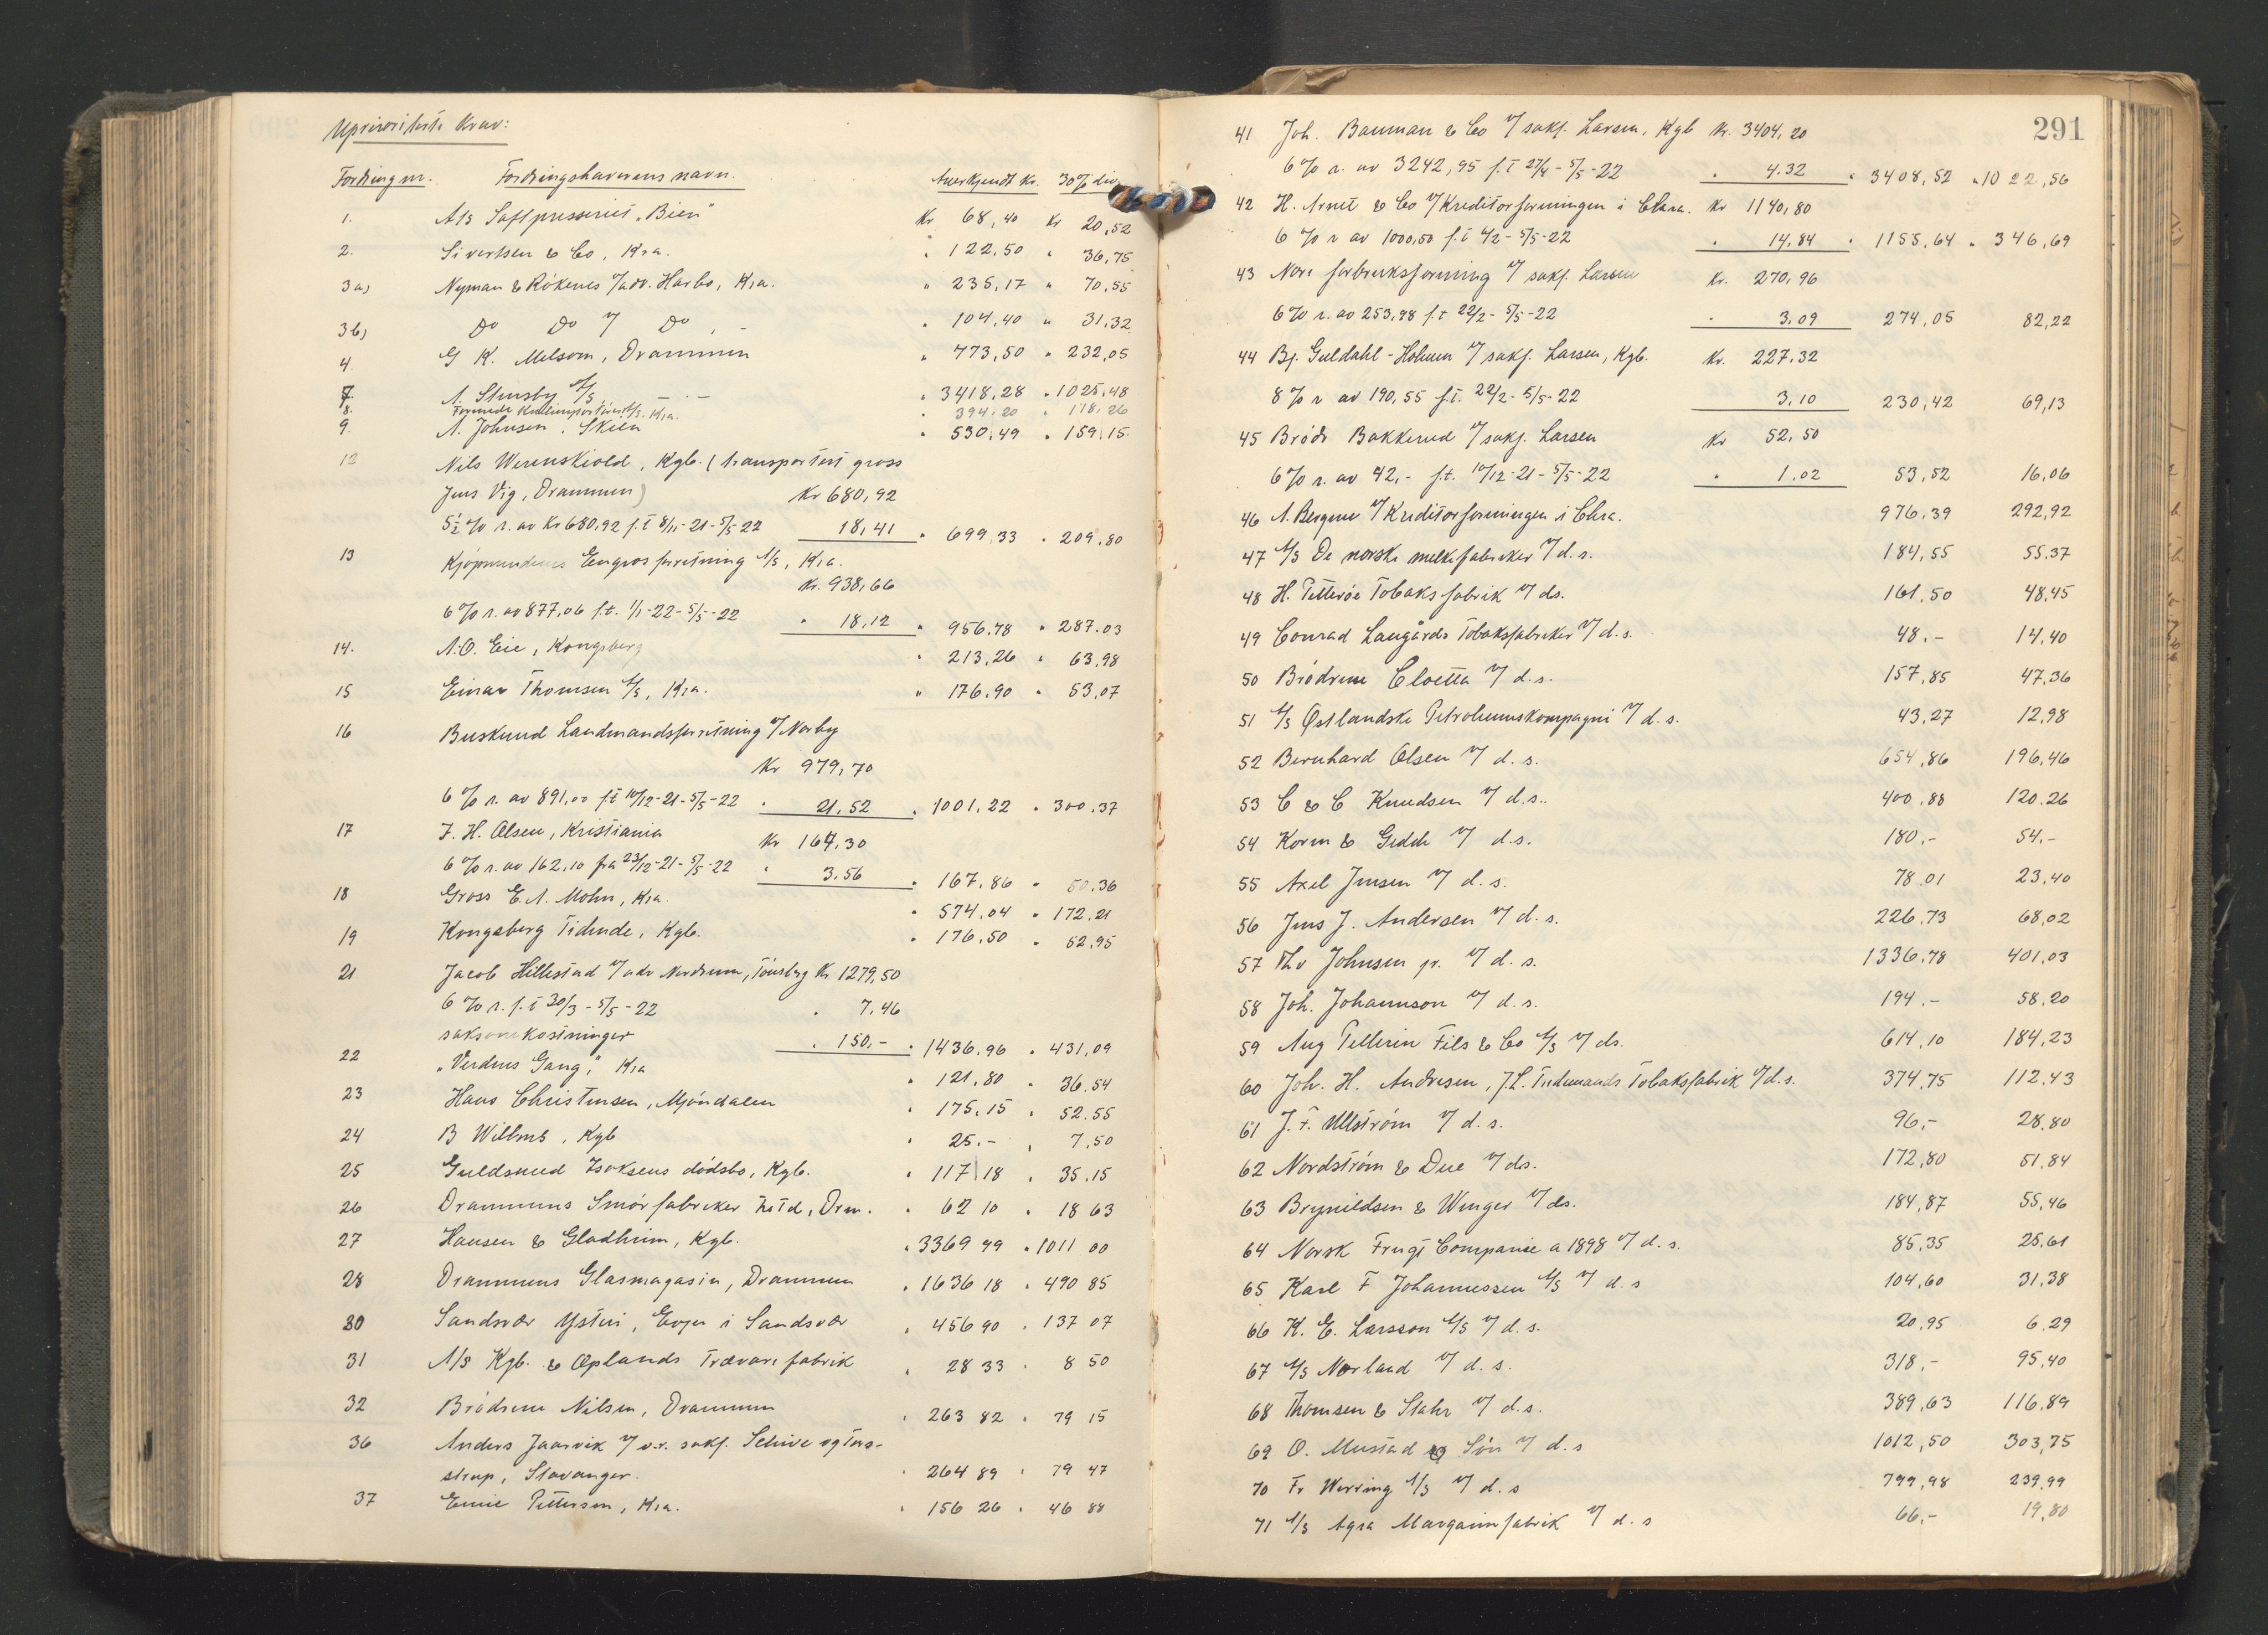 Upriviriterte krav:
Fordring nr. Fordringshaverens navn. Anerkjendt Kr. 30% div
1. A/s Saftpresseriet „Bien" Kr 68,40 Kr 20,52
2. Sivertsen & Co, Kra. " 122,50 " 36,75
3a) Nyman & Rökenes v/adv. Harbo, Kra. " 235,17 " 70,55
3b) Do Do v/ Do, - " 104,40 " 31,32
4. G K. Melsom, Drammen " 773,50 " 232,05
7. A. Stensby A/S, - " 3418,28 " 1025,48
8. Forenede Kulimportører A/S. Kra. " 394,20 " 118,26
9. A. Johnsen, Skien " 530,49 " 159,15
12 Nils Werenskiold, Kgb. (transportert gross
Jens Vig, Drammen) Kr 680,92
5½ % r. av Kr 680,92 f.t 8/11-21-5/5-22 18,41 " 699,33 " 209,80
13 Kjøpmendenes Engrosforretning A/S, Kra.
Kr. 938,66
6 % r. av 877,06 f.t. 1/1-22-5/5-22 " 18,12 " 956,78 " 287.03
14. A.O. Eie, Kongsberg " 213,26 " 63,98
15 Einar Thomsen A/S, Kra. " 176.90 " 53,07
16 Buskerud Landmandsforretning v/ Norby
Kr 979,70
6 % r. av 891,00 f.t 10/12-21-5/5-22 " 21,52 " 1001,22 " 300,37
17 F. H. Olsen, Kristiania Kr 164,30
6 % r. av 162,10 fra 23/12-21-5/5-22 " 3,56 " 167,86 " 50,36
18 Gross E. A. Mohn, Kra. " 574,04 " 172,21
19 Kongsberg Tidende, Kgb. " 176,50 " 52,95
21 Jacob Hillestad v/ adv Nordrum, Tönsberg Kr 1279,50
6 % r. f.t 30/3-5/5-22 " 7,46
saksomkostninger " 150,- " 1436,96 " 431,09
22 „Verdens Gang", Kra " 121,80 " 36.54
23 Hans Christensen, Mjöndalen " 175,15 " 52.55
24 B Wilbms, Kgb " 25.- " 7,50
25 Guldsmed Isaksens dödsbo, Kgb. " 117 18 " 35.15
26 Drammens Smörfabriker Ltd, Drm. " 62 10 " 18 63
27 Hansen & Gladheim, Kgb. " 3369 99 " 1011 00
28 Drammens Glasmagasin, Drammen " 1636 18 " 490 85
30 Sandsvær Ysteri, Evju i Sandsvær " 456 90 " 137 07
31 A/S Kgb. & Oplands Trævarefabrik " 28 33 " 8 50
32 Brödrene Nilsen, Drammen " 263 82 " 79 15
36 Anders Jaarvik v/ o.r. sakf. Schive og Tra-
strup, Stavanger. " 264 89 " 79 47
37 Emil Pettersen, Kra. " 156 26 " 46 88
291
41 Joh. Bauman & Co v/ sakf. Larsen, Kgb Kr. 3404,20
6 % r. av 3242,95 f.t 27/4-5/5-22 " 4.32 " 3408,52 " 1022,56
42 H. Arnet & Co v/ Kreditorforeningen i Chra. Kr 1140,80
6 % r av 1000,50 f.t 4/2-5/5-22 " 14,84 " 1155,64 " 346,69
43 Nore forbruksforening v/ sakf. Larsen Kr. 270,96
6 % r. av 253,98 f.t 22/2-5/5-22 " 3,09 274,05 82,22
44 Bj. Guldahl-Holmen v/ sakf. Larsen, Kgb. Kr. 227,32
8 % r av 190,55 f.t. 22/2-5/5-22 3,10 230,42 69,13
45 Brödr Bakkerud v/ sakf. Larsen Kr 52,50
6 % r. av 42,- f.t. 10/12-21-5/5-22 " 1.02 53,52 16,06
46 A. Bergene v/ Kreditorforeningen i Chra. 976,39 292,92
47 A/S De norske melkefabriker v/ d.s. 184,55 55.37
48 H. Petterøe Tobaksfabrik v/ ds. 161,50 48,45
49 Conrad Langårds Tobaksfabriker v/ d.s. 48.- 14,40
50 Brödrene Cloetta v/ d.s. 157,85 47,36
51 A/S Østlandske Petroleumskompagni v/ d.s. 43,27 12,98
52 Bernhard Olsen v/ d.s. 654,86 196,46
53 C & C Knudsen v/ d.s.. 400,88 120.26
54 Korm & Gedde v/ d.s. 180,- 54.-
55 Axel Jensen v/ d.s. 78,01 23,40
56 Jens J. Andersen v/ d.s. 226,73 68,02
57 Thv Johnsen jr. v/ d.s. 1336,78 401,03
58 Joh. Johannson v/ d.s. 194.- 58,20
59 Aug Pellerin Fils & Co A/S v/ ds. 614,10 184,23
60 Joh. H. Andresen, J.L. Tiedemands Tobaksfabrik v/ d.s. 374,75 112,43
61 J. F. Ullström v/ d.s. 96,- 28.80
62 Nordström & Due v/ ds. 172,80 51,84
63 Brynildsen & Winger v/ ds. 184,87 55,46
64 Norsk Frugt Compani a 1898 v/ d.s. 85,35 25,61
65 Karl F Johannessen A/S v/ d.s 104,60 31,38
66 K. E. Larsson A/S v/ d.s. 20,95 6.29
67 A/S Norland v/ d.s. 318,- 95,40
68 Thomsen & Stahr v/ d.s. 389,63 116,89
69 O. Mustad & Sön v/ d.s 1012,50 303,75
70 Fr Werring A/S v/ d.s 799,98 239,99
71 A/S Agra Margarinfabrik v/ d.s 66,- 19,80